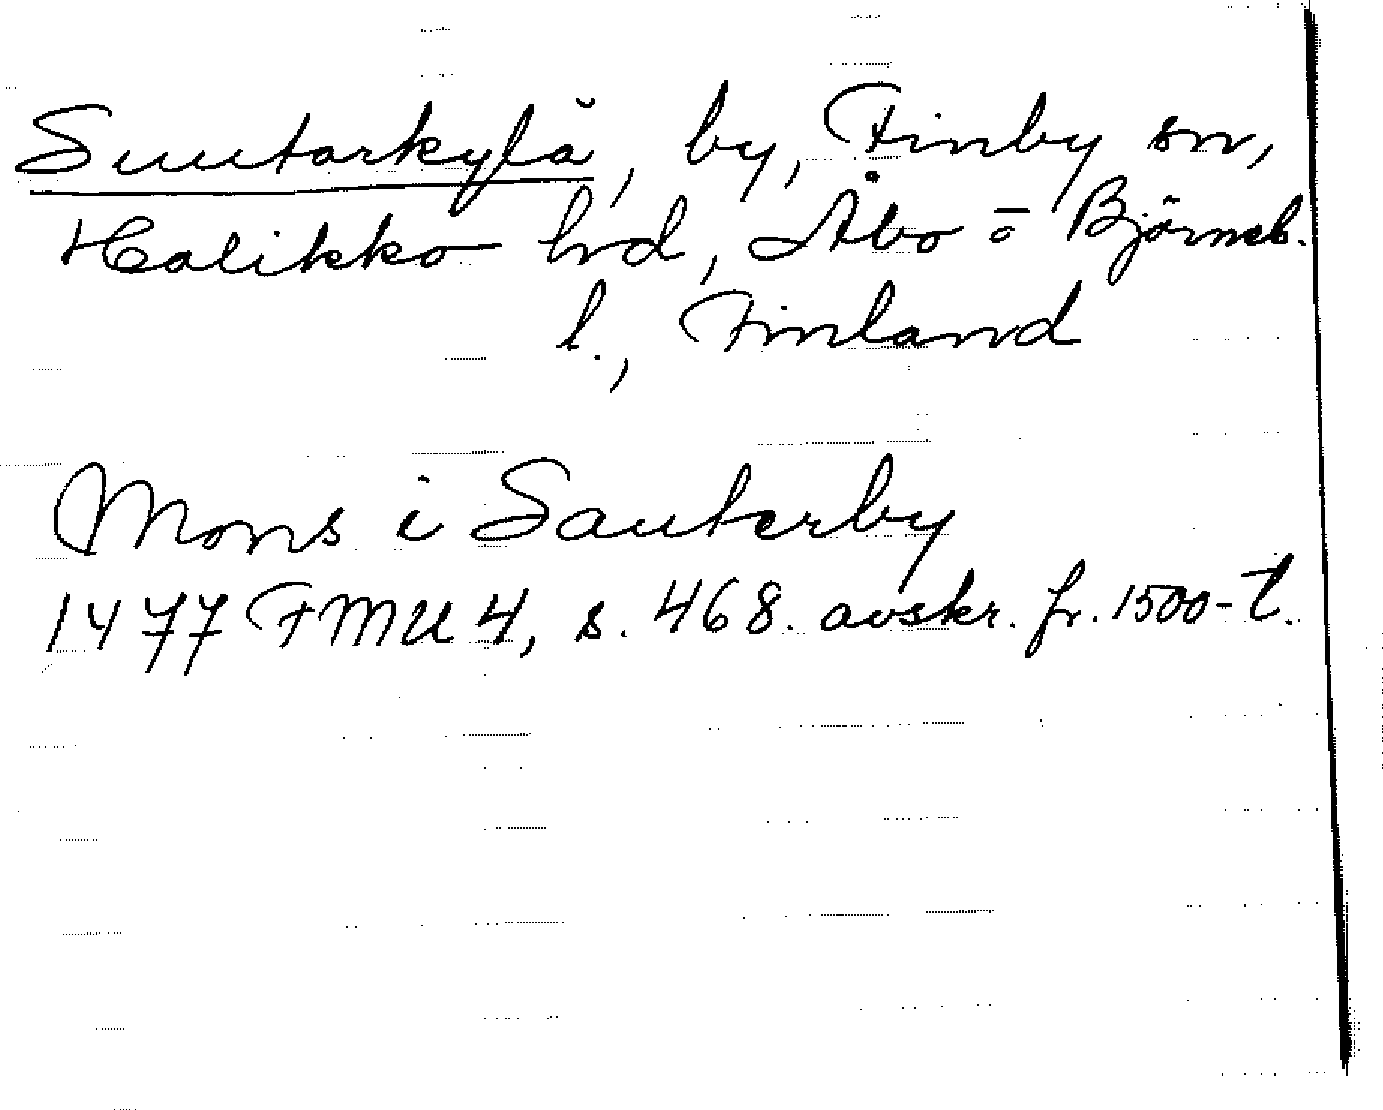 Suutarkylä, by, Finby sn,
Halikko hd, Åbo o Björneb.
l., Finland
Mons i Sauterby
1477 FMU 4, s. 468. avskr. fr. 1500-t.